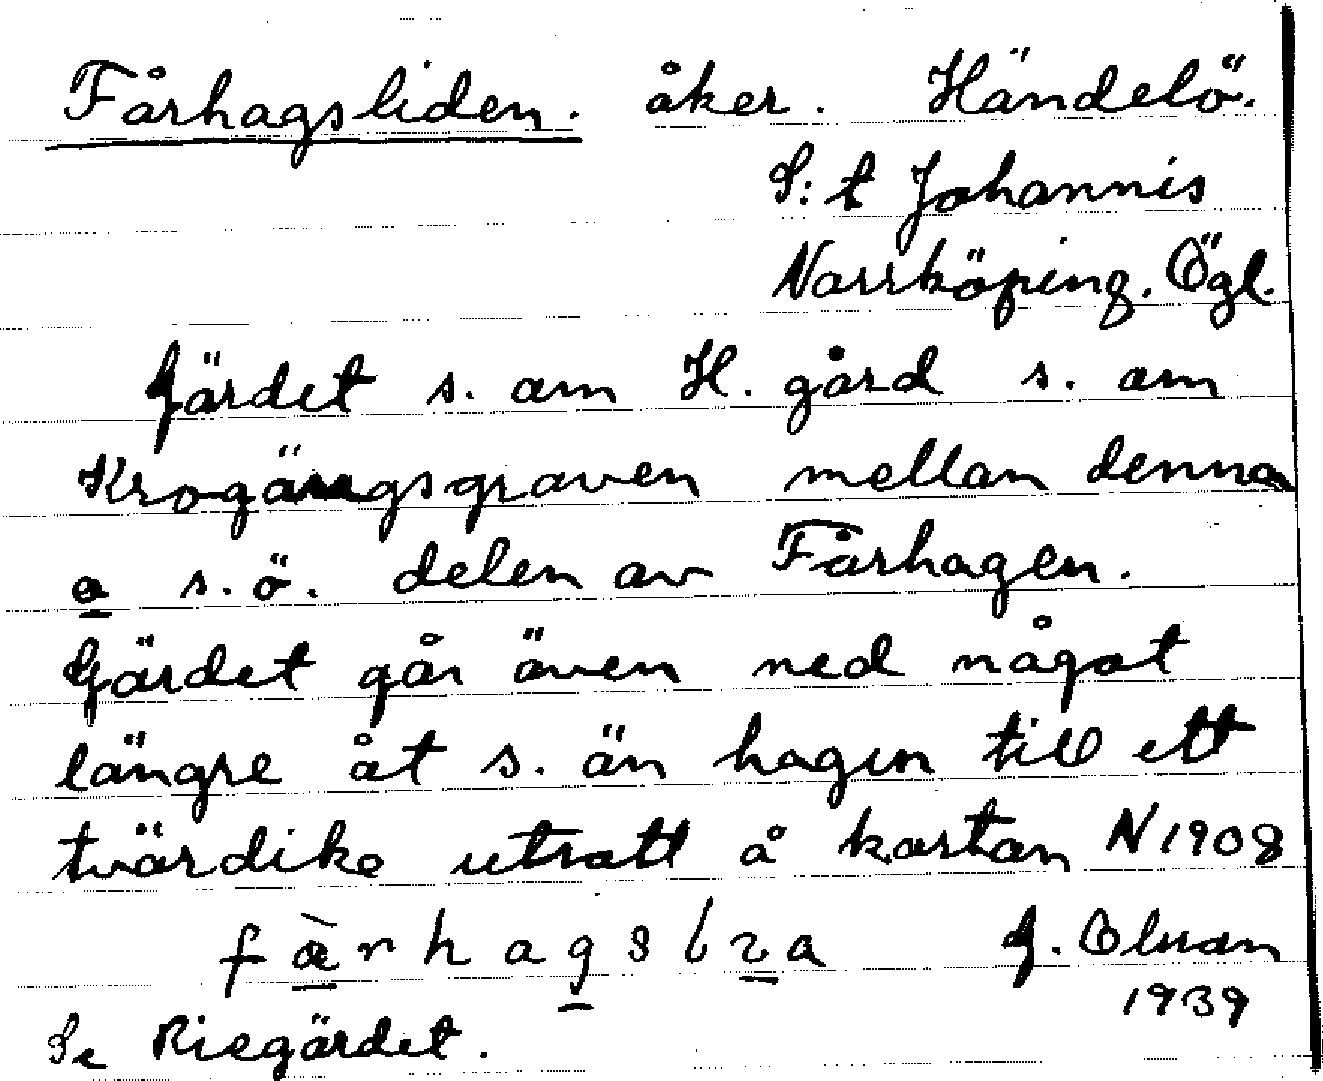 Fårhagsliden. åker. Händelö.
S:t Johannis
Norrköping. Ögl.
Gärdet s. om H. gård s. om
Krogängsgraven mellan denna
o s.ö. delen av Fårhagen.
Gärdet går även ned något
längre åt s. än hagen till ett
tvärdike utsatt å kartan N 1908
fàrhagslɩa G. Olsson
1939
Se Risgärdet.